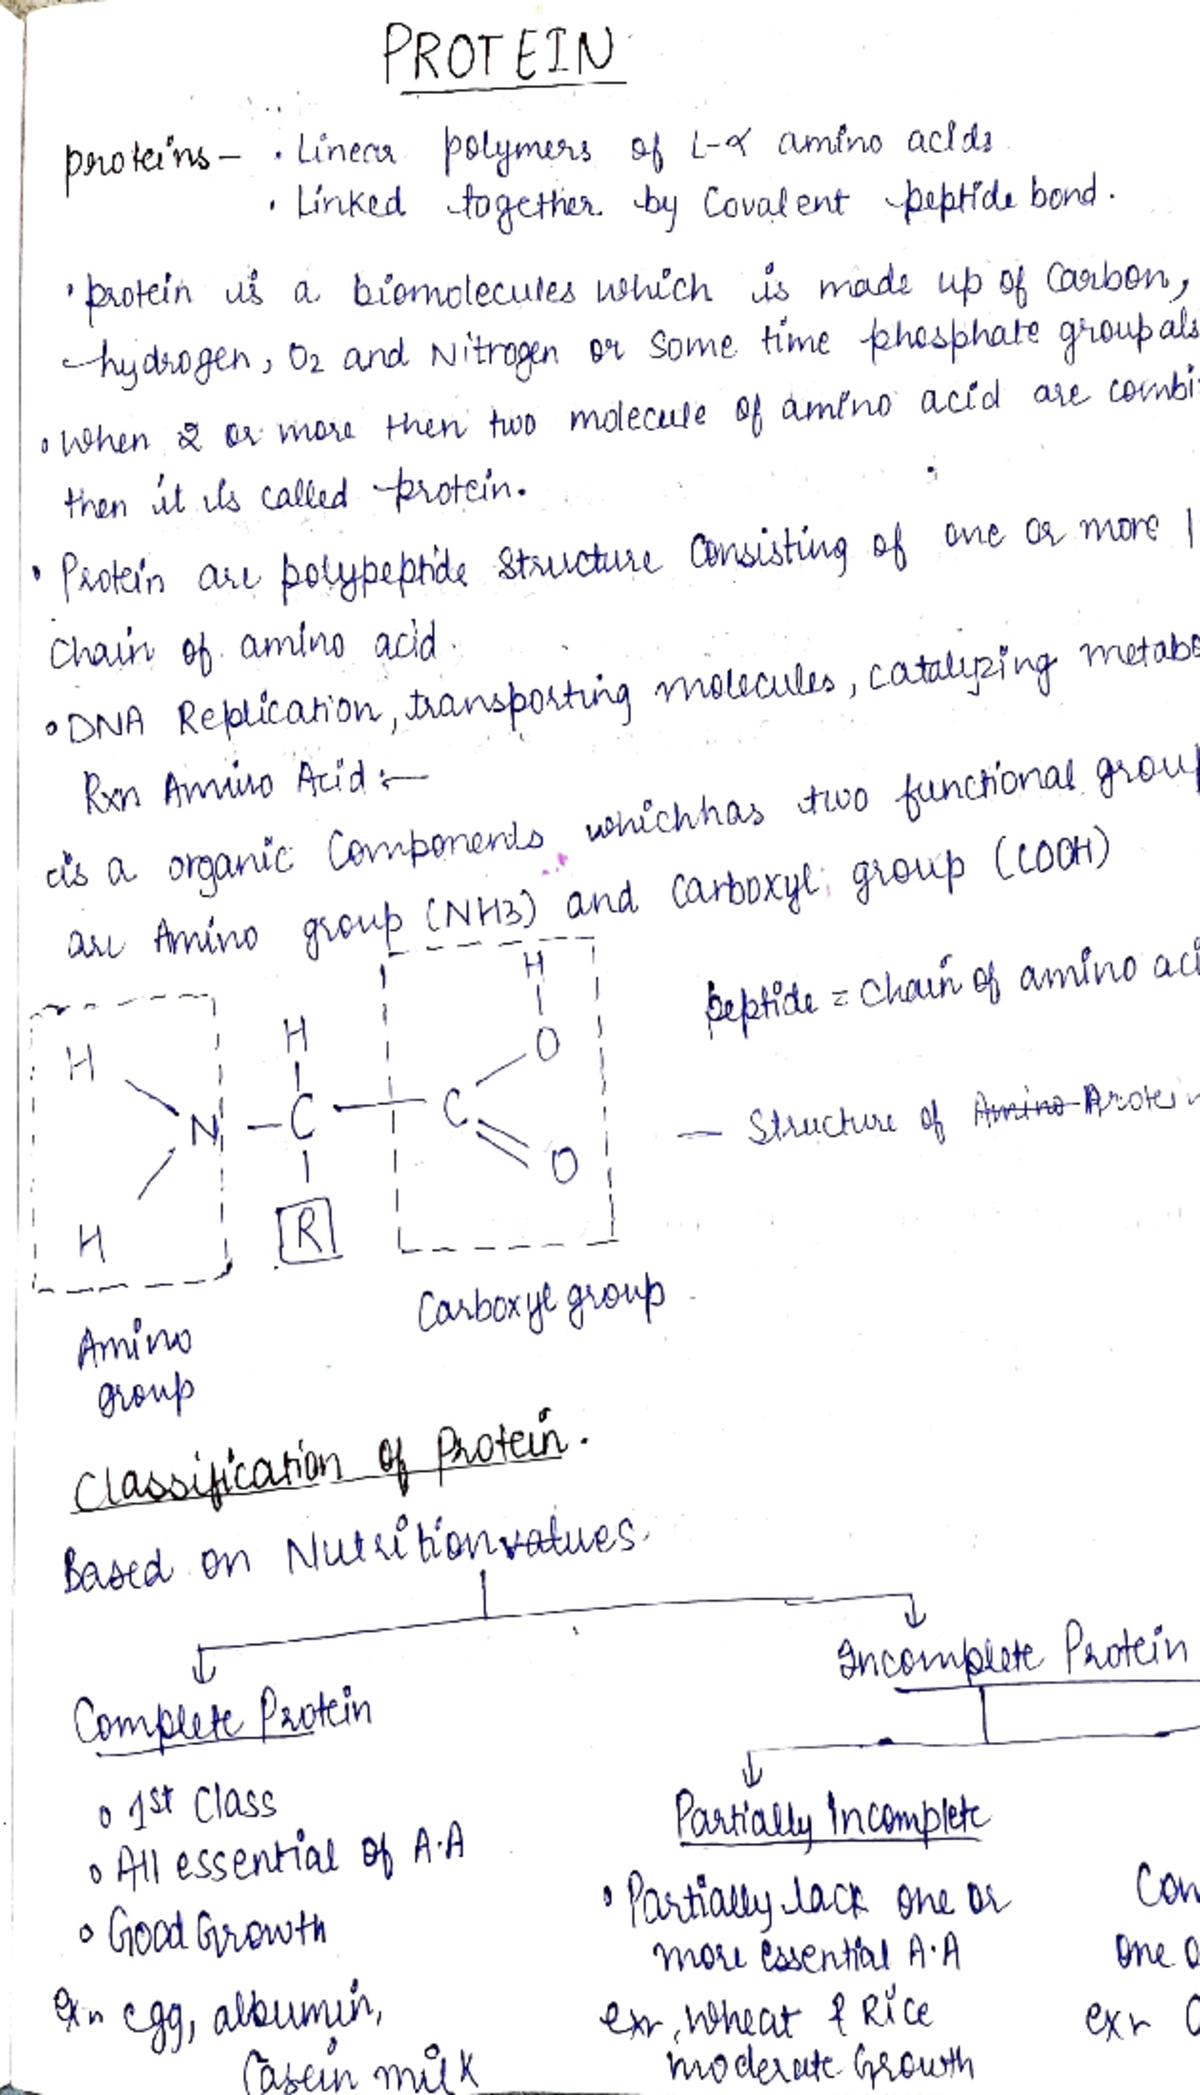 PROTEIN
proteins - • Linear polymers of L-α amino acids.
• Linked together by Covalent peptide bond.
• protein is a biomolecules which is made up of Carbon,
hydrogen, O2 and Nitrogen or Some time phosphate group als
• When 2 or more then two molecule of amino acid are combi
then it is called protein.
• Protein are polypeptide Structure Consisting of one or more
Chain of amino acid.
• DNA Replication, transporting molecules, catalyzing metabo
Rxn Amino Acid :-
is a organic Components which has two functional group
are Amino group (NH3) and Carboxyl group (COOH)
H
H
H
O
N - C - C
O
H
R
peptide = Chain of amino aci
- Structure of Amino Protein
Amino
group
Carboxyl group
Classification of Protein.
Based on Nutrition values.
Complete Protein
• 1st Class
• All essential of A.A
• Good Growth
Ex- egg, albumin,
Casein milk
Incomplete Protein
Partially Incomplete
• Partially lack one or
more essential A.A
ex-, Wheat & Rice
moderate Growth
Con
One o
ex- C